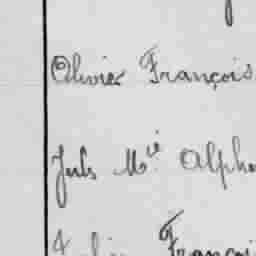 Olivier François
Juls M.ié Alpho
François